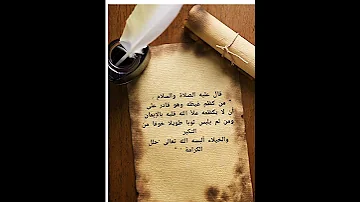 قال عليه الصلاة والسلام
" من كظم غيظه وهو قادر على
أن لا يكظمه ملأ الله قلبه بالإيمان
ومن لم يلبس ثوبا طويلا خوفا من
التكبر
والخيلاء ألبسه الله تعالى حلل
الكرامة "